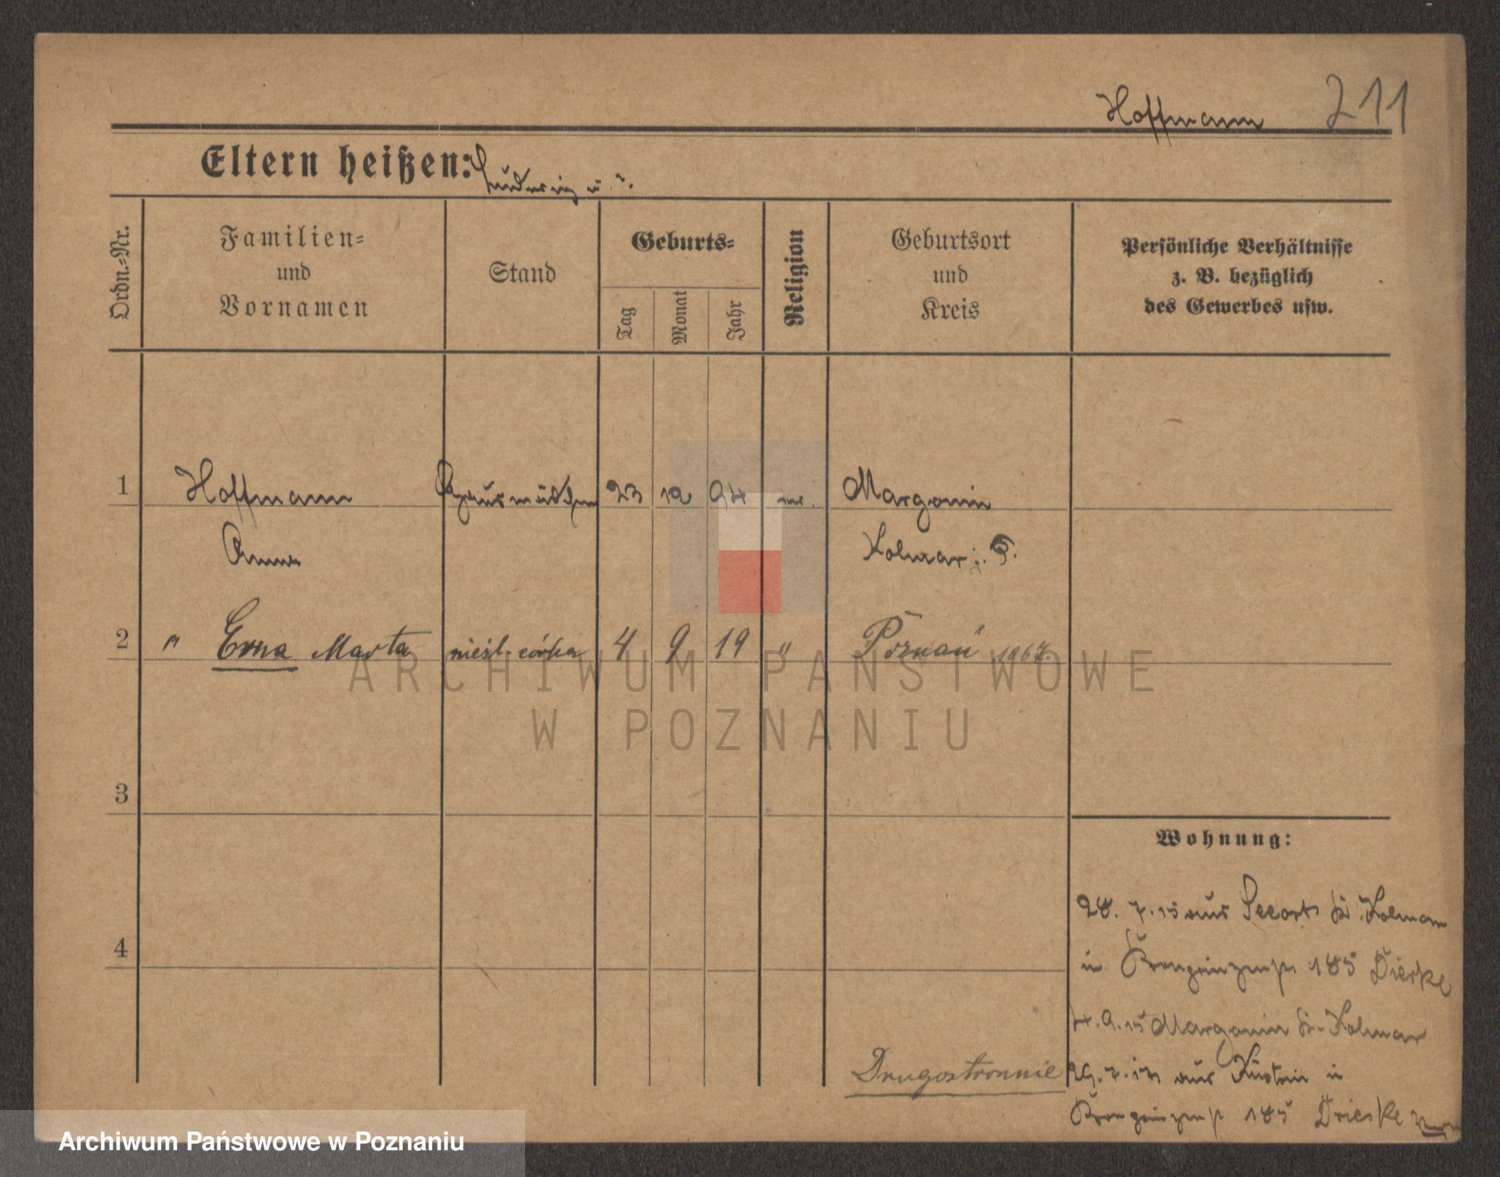 Hoffmann 211
Eltern heißen: Ludwig u.
Ordn.-Nr.
Familien-
und
Vornamen
Stand
Geburts-
Tag
Monat
Jahr
Religion
Geburtsort
und
Kreis
Persönliche Verhältnisse
z. B. bezüglich
des Gewerbes usw.
1 Hoffmann 23 12 94 ev. Margonin
Anna Kolmar i. P.
2 " Erna Marta nieśl. córka 4 9 19 " Poznań
3
Wohnung:
28. 7. 15 aus Kolmar
4
in Kronprinzenstr 185 Dierke
4. 9. 15 Margonin Kr. Kolmar
Drugostronnie
aus Küstrin in
Kronprinzenstr 185
ARCHIWUM PAŃSTWOWE
W POZNANIU
Archiwum Państwowe w Poznaniu